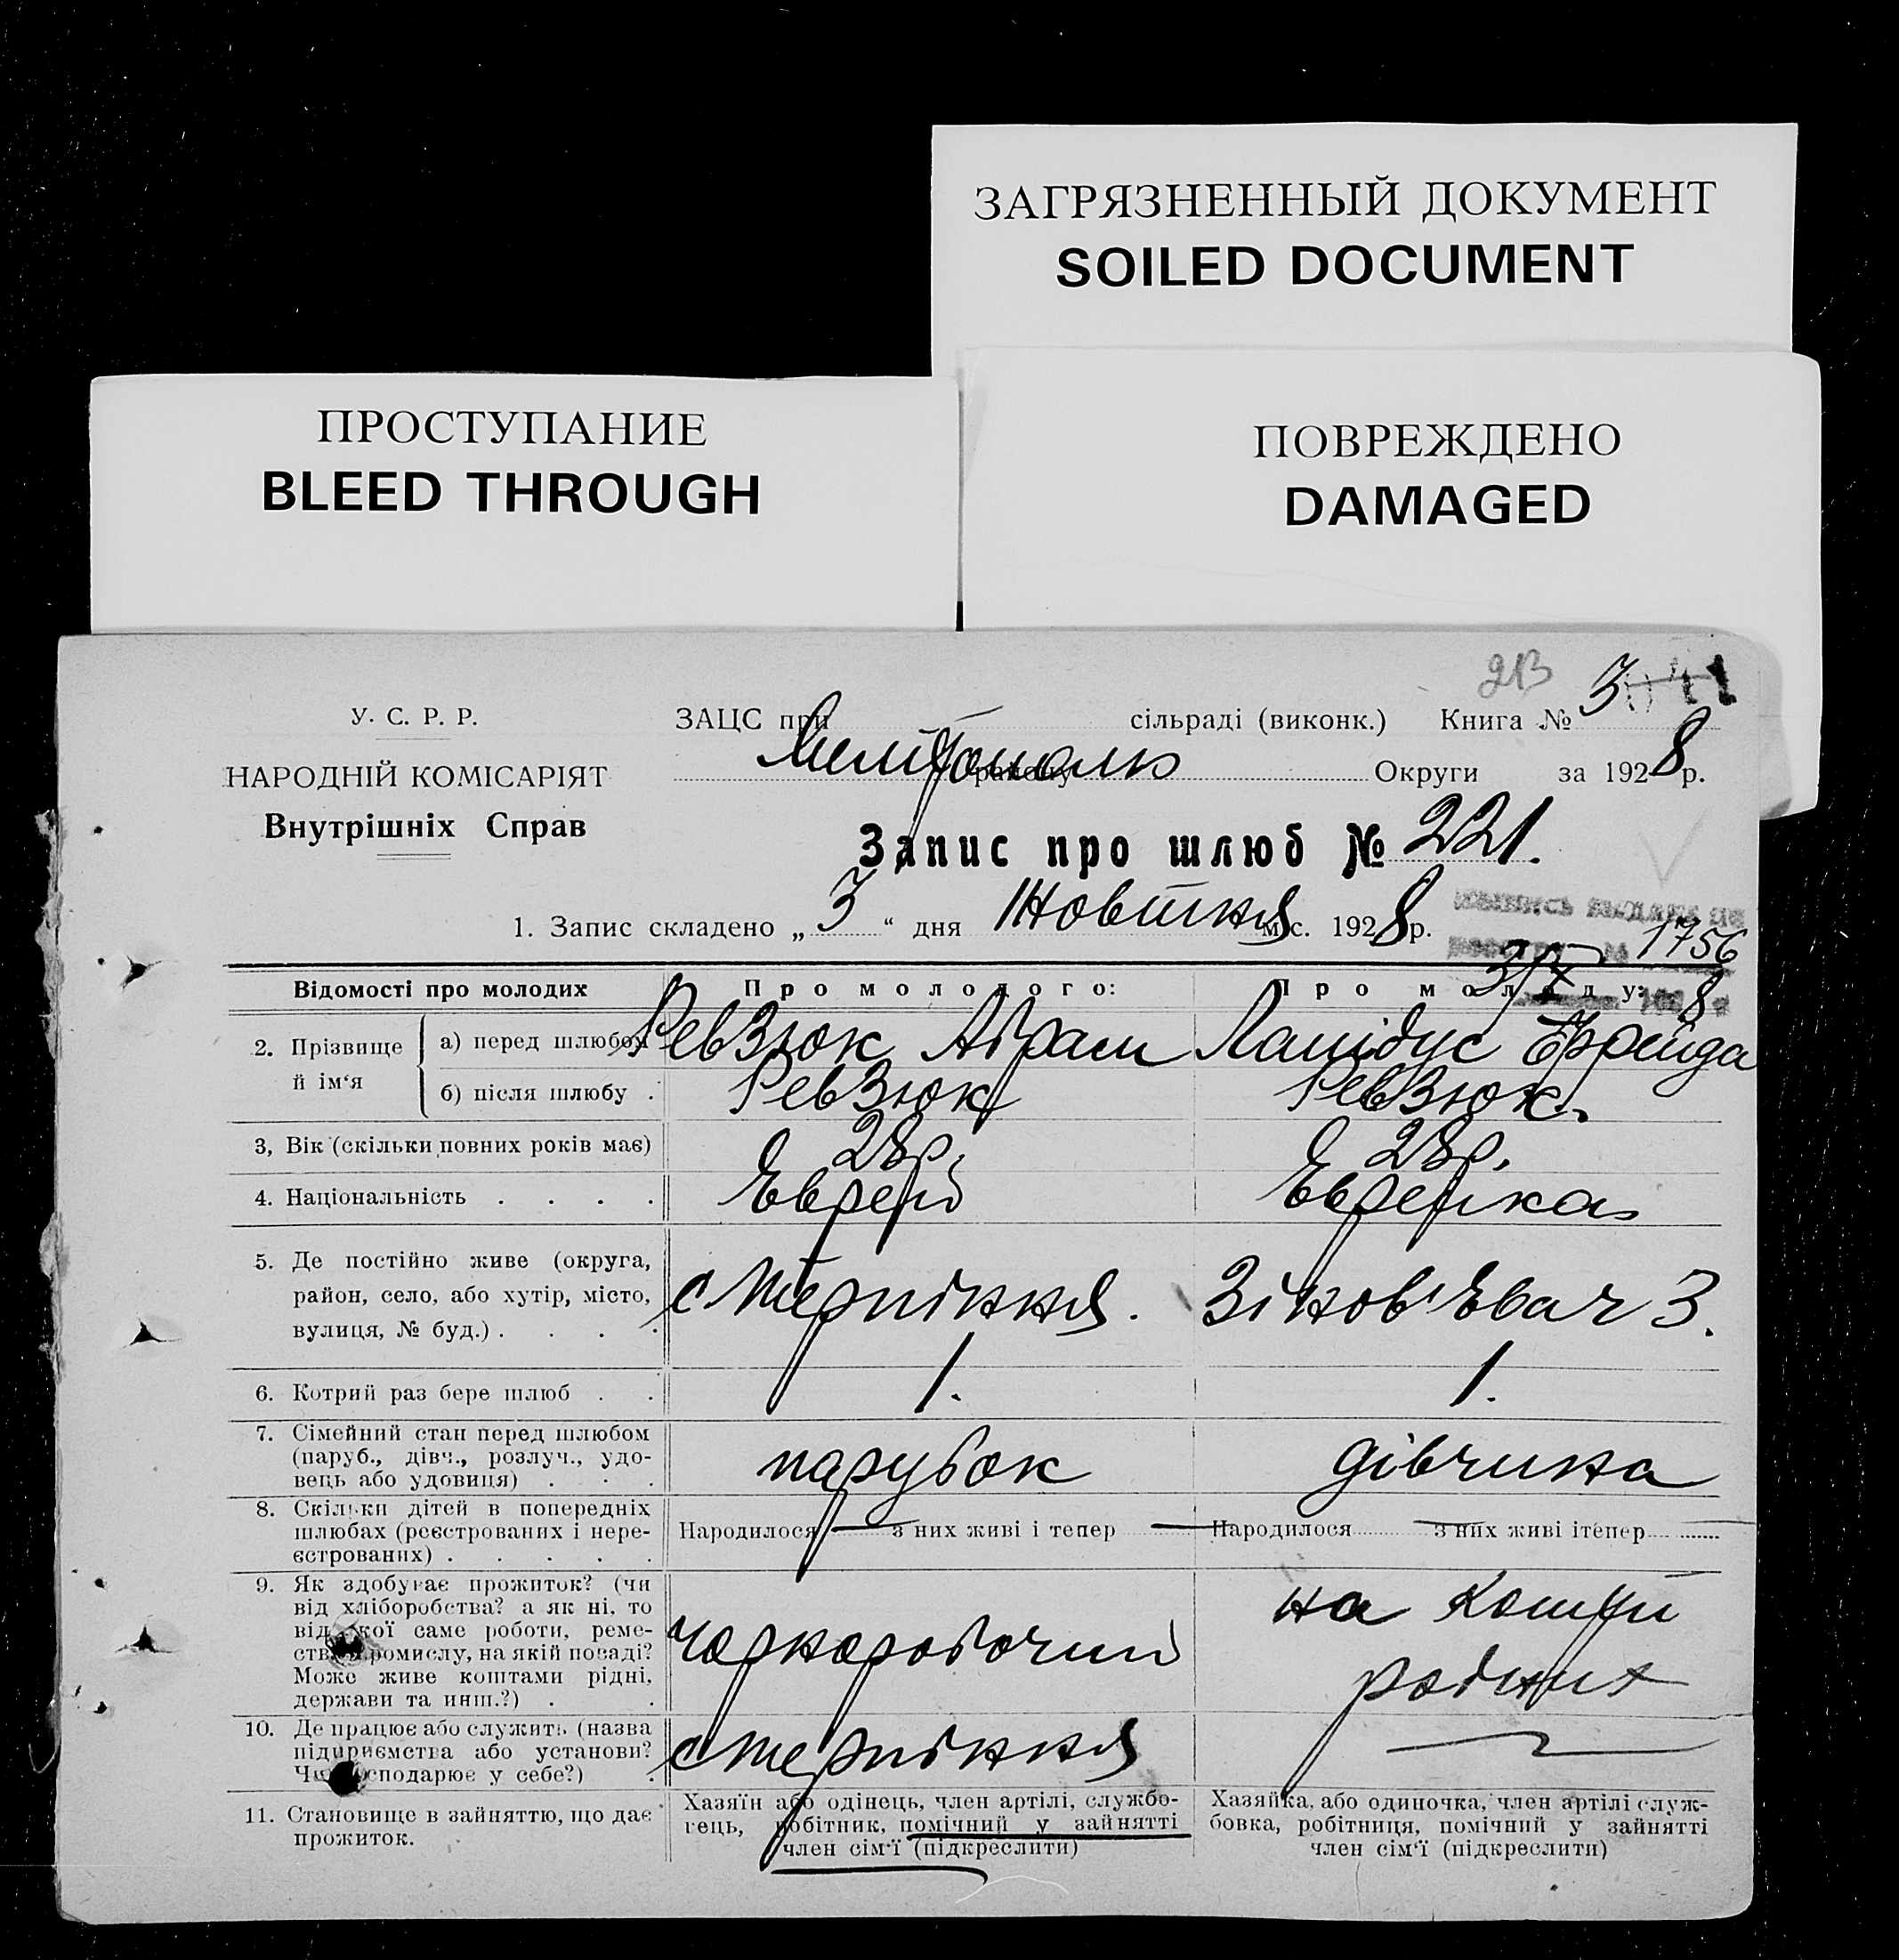 ЗАГРЯЗНЕННЫЙ ДОКУМЕНТ
SOILED DOCUMENT
ПРОСТУПАНИЕ
BLEED THROUGH
ПОВРЕЖДЕНО
DAMAGED
213
У. С. Р. Р.
НАРОДНІЙ КОМІСАРІЯТ
Внутрішніх Справ
ЗАЦС при сільраді (виконк.) Книга № 3
Мелітополь району Округи за 1928 р.
Запис про шлюб № 221.
1. Запис складено „ 3 “ дня Жовтня м-с. 1928 р.
1756
3/X 8
Відомості про молодих Про молодого: Про молоду:
2. Прізвище й ім‘я
а) перед шлюбом Ревзюк Абрам Лапідус Ефрейда
б) після шлюбу . Ревзюк Ревзюк.
3, Вік (скільки повних років має) 28 р. 28 р.
4. Національність . . . . Еврей Еврейка
5. Де постійно живе (округа,
район, село, або хутір, місто,
вулиця, № буд.) . . . . с Терпіння. Зінов'Євач 3.
6. Котрий раз бере шлюб . . 1. 1.
7. Сімейний стан перед шлюбом
(паруб., дівч., розлуч., удо-
вець або удовиця) . . . парубок дівчина
8. Скільки дітей в попередніх
шлюбах (реєстрованих і нере-
єстрованих) . . . . .
Народилося — з них живі і тепер — Народилося з них живі ітепер —
9. Як здобуває прожиток? (чи
від хліборобства? а як ні, то
від якої саме роботи, реме-
ства, промислу, на якій посаді?
Може живе коштами рідні,
держави та инш.?) . .
чорноробочий
на кошти
рідних
10. Де працює або служить (назва
підприємства або установи?
Чи господарює у себе?) .
с Терпіння —
11. Становище в зайняттю, що дає
прожиток.
Хазяїн або одінець, член артілі, службо-
вець, робітник, помічний у зайнятті
член сім‘ї (підкреслити)
Хазяйка, або одиночка, член артілі служ-
бовка, робітниця, помічний у зайнятті
член сім‘ї (підкреслити)